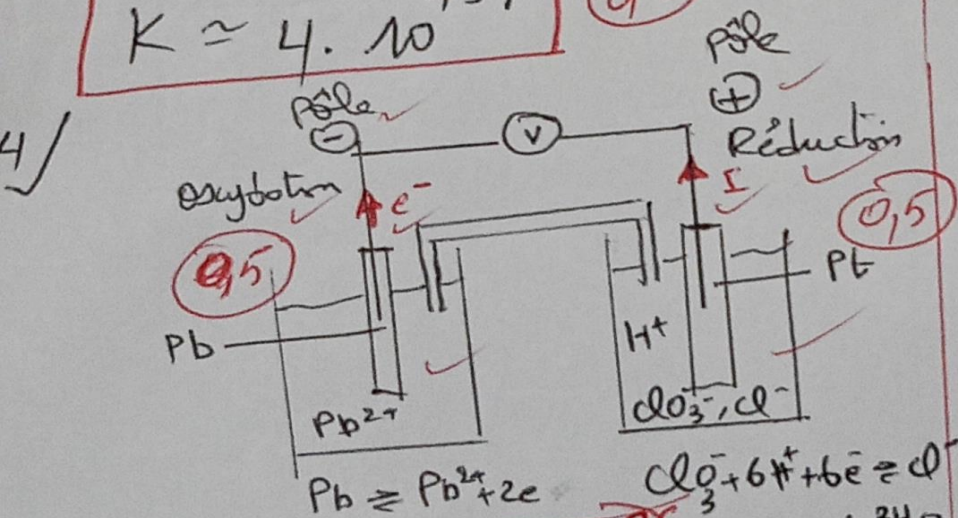 K ≃ 4. 10
4/
pôle ⊖
V
pôle ⊕
Réduction
oxydation
e⁻
I
0,5
0,5
Pb
Pt
H⁺
Pb²⁺
ClO₃⁻, Cl⁻
Pb ⇌ Pb²⁺ + 2e
ClO₃⁻ + 6H⁺ + 6e⁻ ⇌ Cl⁻